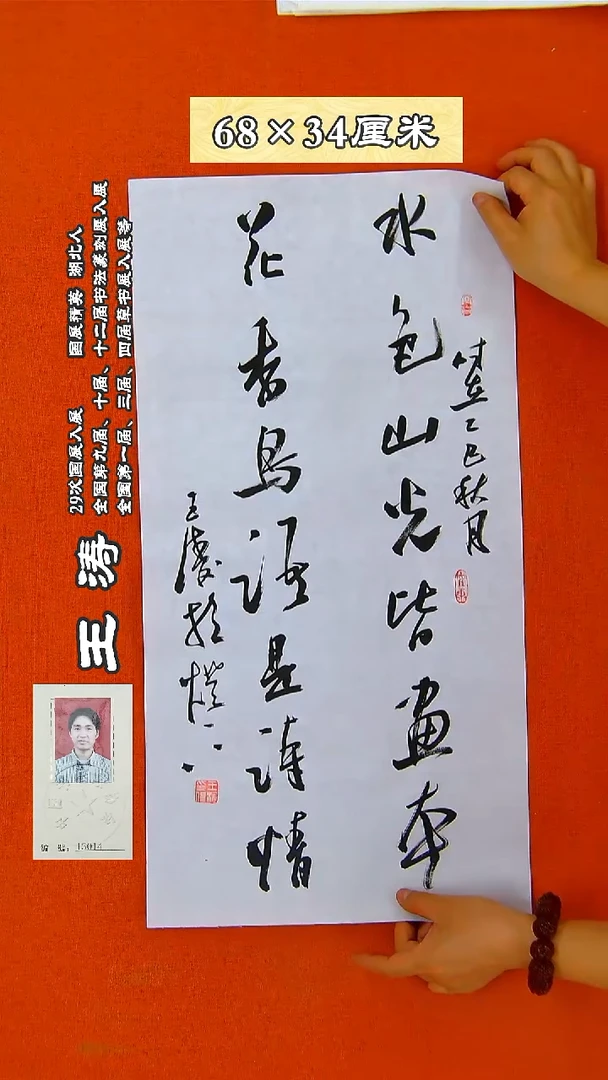 68×34厘米
水色山光皆画本
花香鸟语是诗情
乙巳秋月
王涛
29次国展入展 国展精英 湖北人
全国第九届、十届、十二届书法篆刻展入展
全国第一届、三届、四届草书展入展等
编 号: 15014